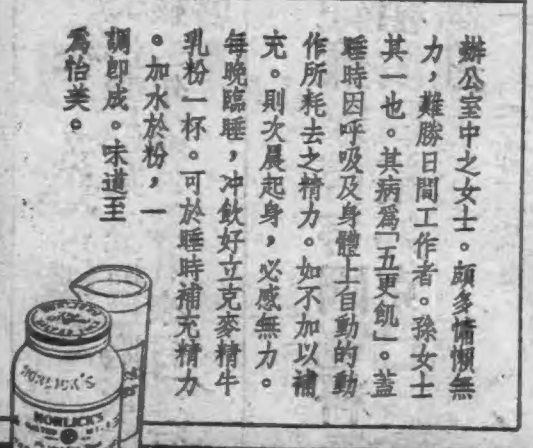 辦公室中之女士。頗多慵懶無
力,難勝日間工作者。孫女士
其一也。其病爲「五更飢」。蓋
睡時因呼吸及身體上自動的動
作所耗去之精力。如不加以補
充。則次晨起身,必感無力。
每晚臨睡,冲飲好立克麥精牛
乳粉一杯。可於睡時補充精力
。加水於粉,一
調即成。味道至
爲怡美。
HORLICK'S
HORLICK'S